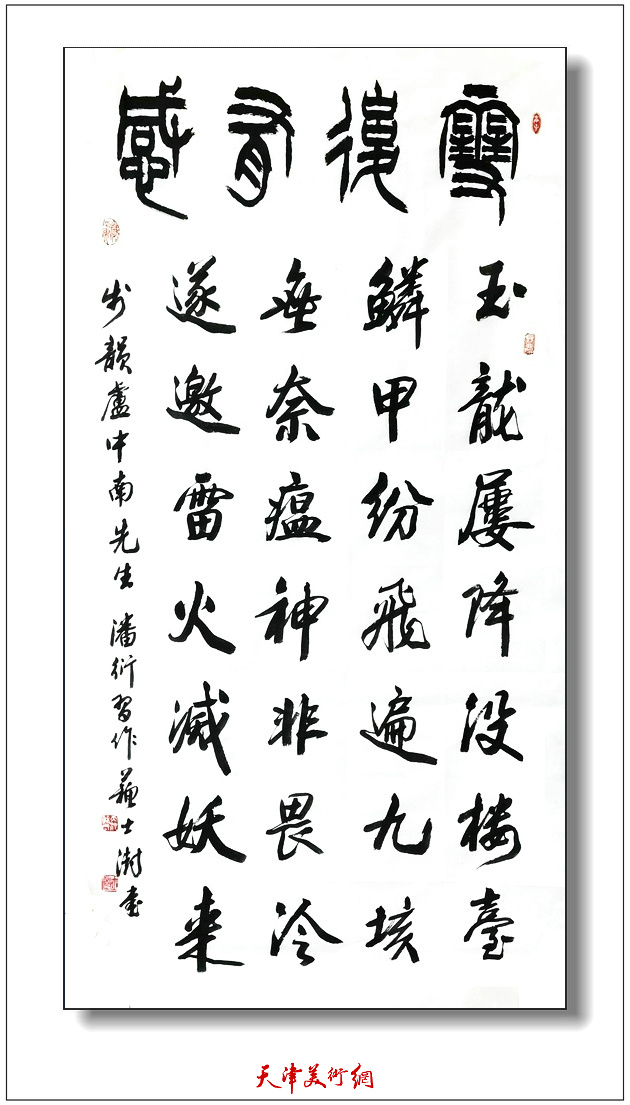 雪復有感
玉龍屢降没楼臺
鱗甲紛飛遍九垓
無奈瘟神非畏冷
遂邀雷火滅妖来
步韻盧中南先生 潘衍習作 蘇士澍書
天津美術網